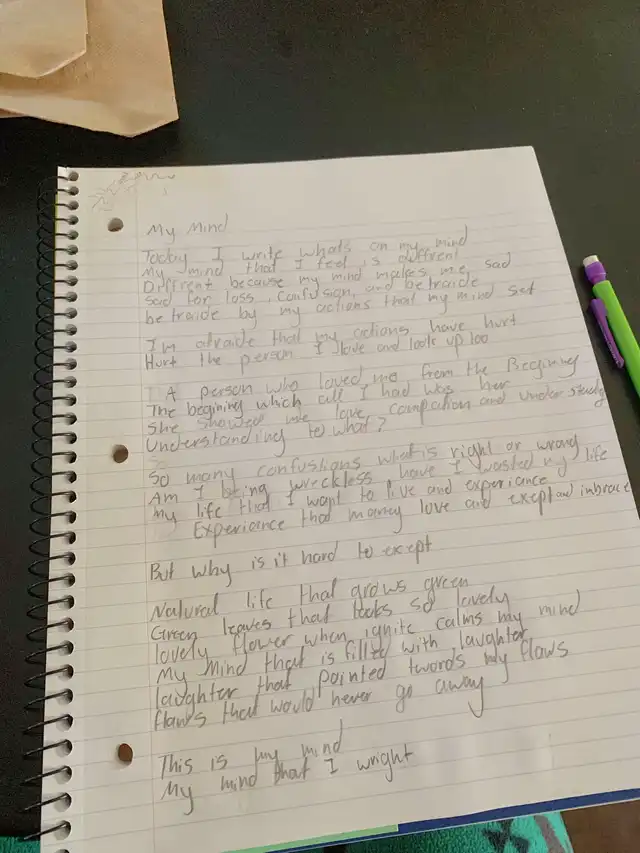 My Mind
Today I write whats on my mind
My mind that I feel is diffrent
Diffrent because my mind makes me sad
sad for loss, confusion, and betraide
betraide by my actions that my mind set
I'm afraide that my actions have hurt
Hurt the person I love and look up too
A person who loved me from the Begining
The begining which all I had was her
She showed me love, compation and understanding
Understanding to what?
So many confustions what is right or wrong
Am I being wreckless have I wasted my life
My life that I want to live and experiance
Experiance that marry love and except and inbrace
But why is it hard to except
Natural life that grows green
Green leaves that looks so lovely
lovely flower when ignite calms my mind
My mind that is filled with laughter
laughter that pointed twords my flaws
flaws that would never go away
This is my mind
My mind that I wright